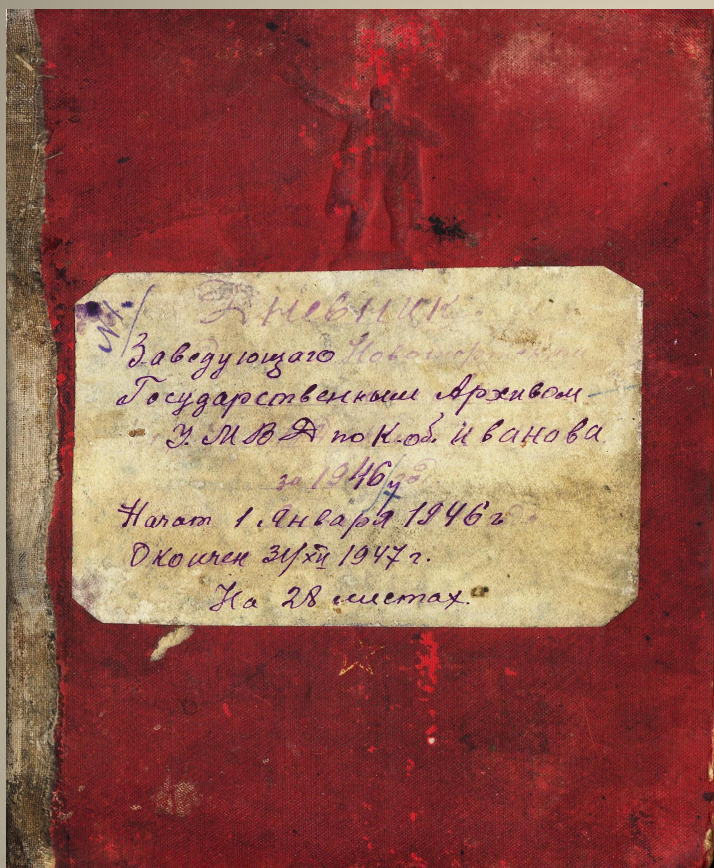 №1.
Дневник
Заведующаго
Государственным Архивом
У.М.В.Д по К.об. Иванова
за 1946 год
Начат 1 Января 1946 г
Окончен 31/XII 1947 г.
На 28 листах.